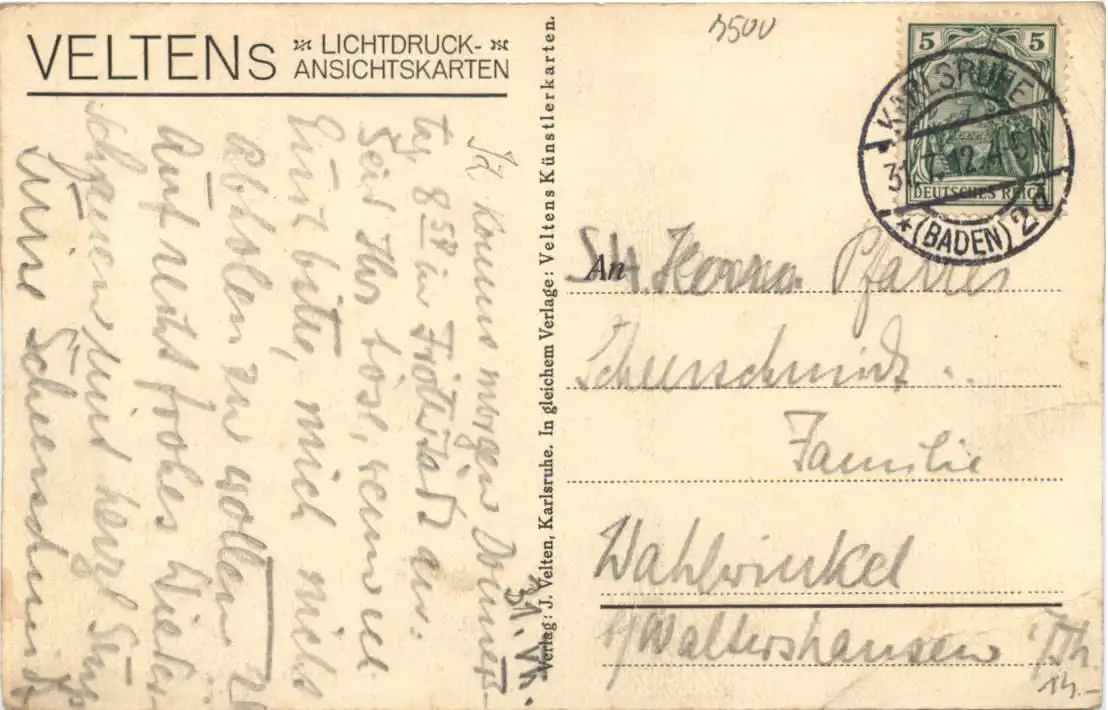 VELTENS LICHTDRUCK-
ANSICHTSKARTEN
3500
5 5
DEUTSCHES REICH
KARLSRUHE
31.7.12.4-5N
*(BADEN) 2d
Verlag: J. Velten, Karlsruhe. In gleichem Verlage: Veltens Künstlerkarten.
31. VII.
Ich komme morgen Donners-
tg. 8 59 in Fröttstädt an.
Seid Ihr böse, wenn ich
Euch bitte, mich nicht
abholen zu wollen?
Auf recht frohes Wieder-
schauen und herzl. Grüße
Scheuerschmidt
An
Herrn Pfarrer
Scheuerschmidt
Familie
Wahlwinkel
b/Waltershausen i/Th.
14.-